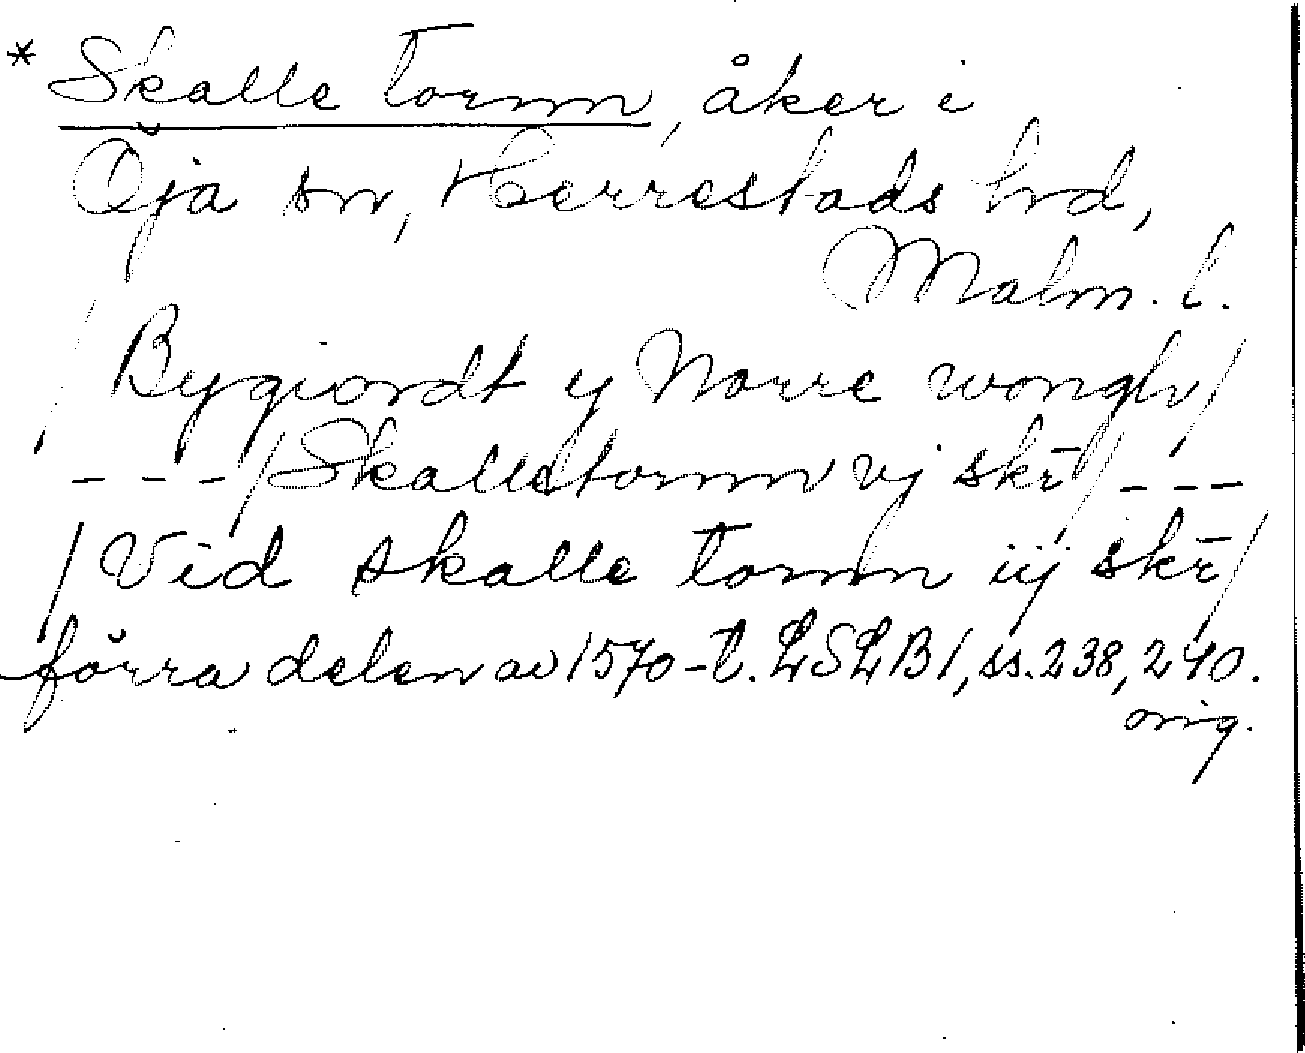 * Skalle tornn, åker i
Öja sn, Herrestads hrd,
Malm. l.
/ Bygiordt y Norre wongh /
- - - / Skalletornn vj skr̄ / - - -
/ Vid skalle tornn iij skr̄ /
förra delen av 1570-t. LSLB1, ss. 238, 240.
orig.